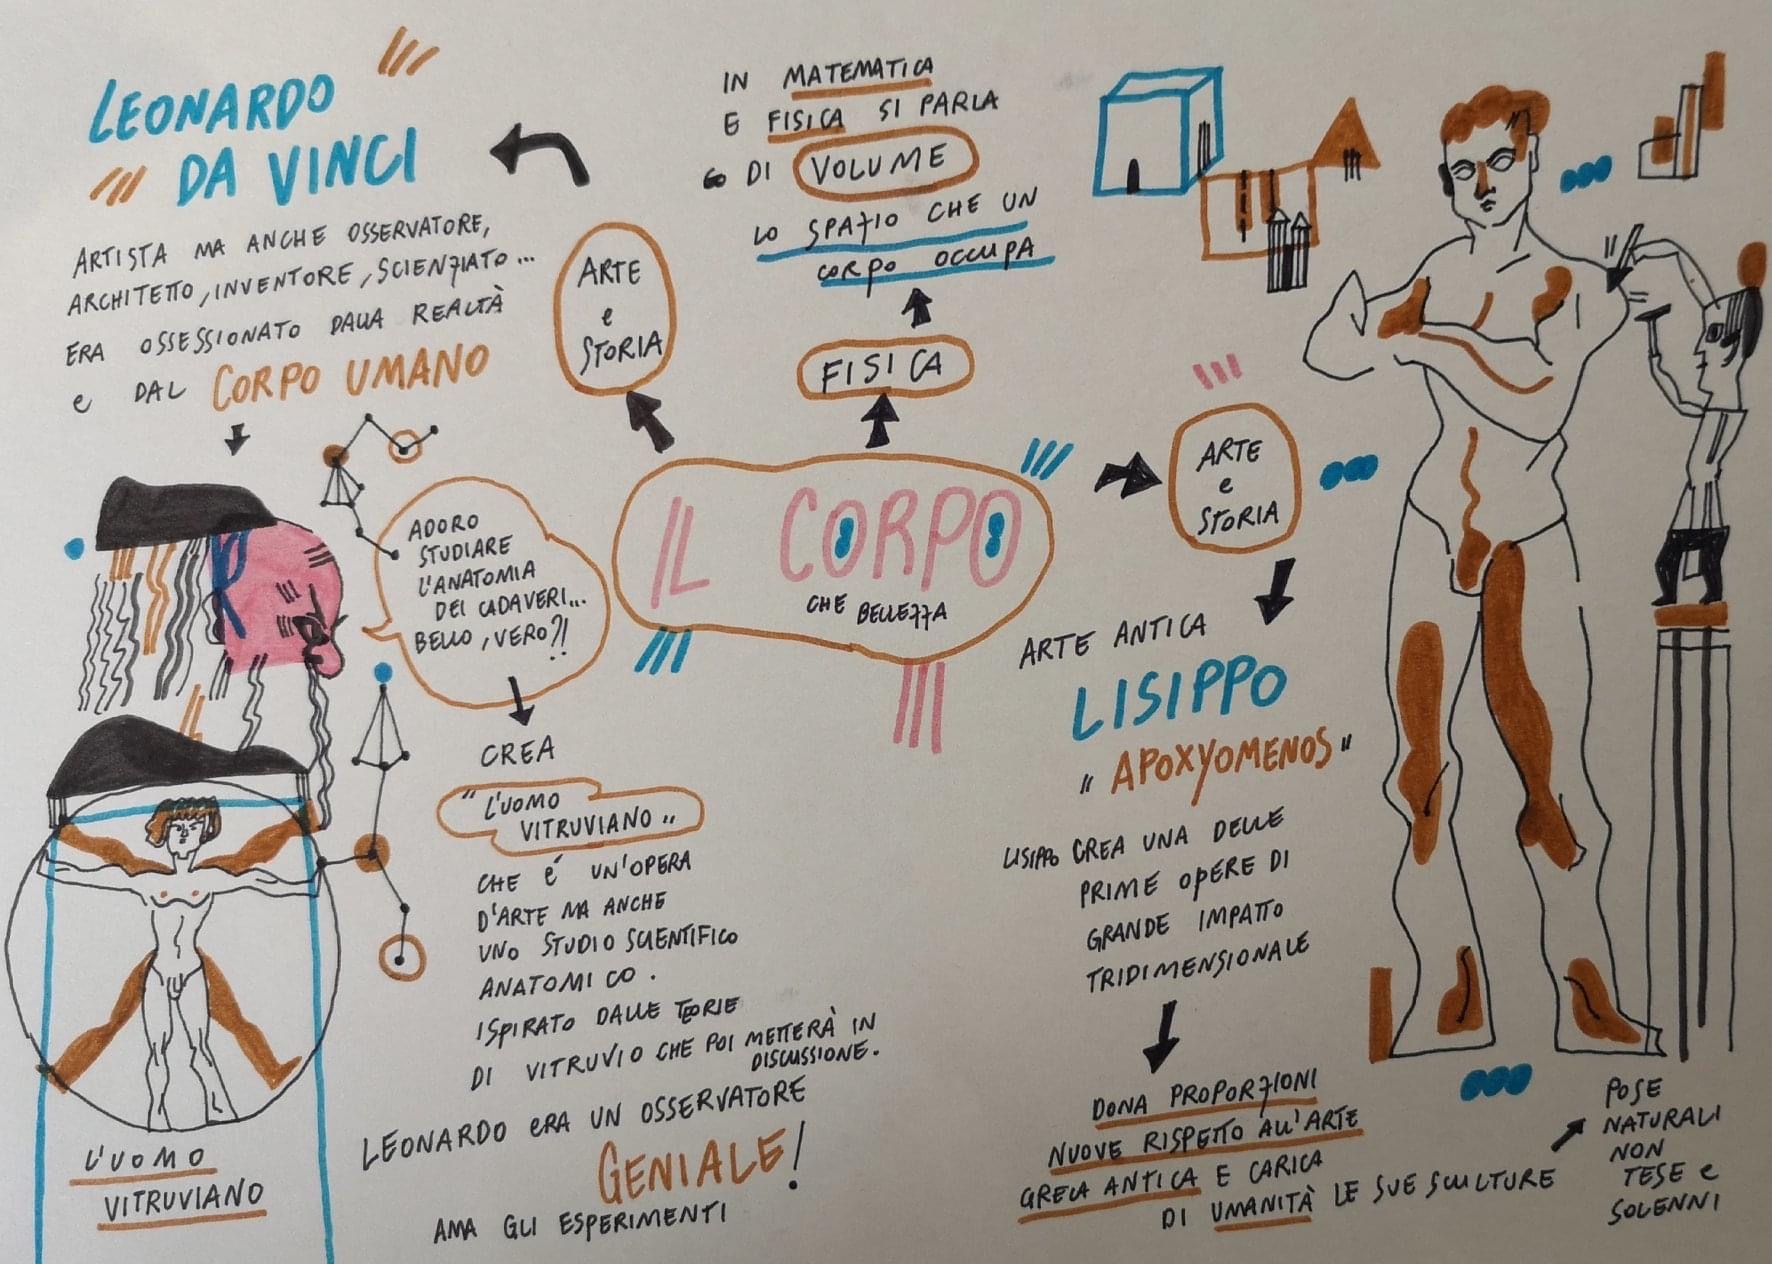 LEONARDO
DA VINCI
ARTISTA MA ANCHE OSSERVATORE,
ARCHITETTO, INVENTORE, SCIENZIATO...
ERA OSSESSIONATO DALLA REALTÀ
e DAL CORPO UMANO
ARTE
e
STORIA
IN MATEMATICA
E FISICA SI PARLA
DI VOLUME
LO SPAZIO CHE UN
CORPO OCCUPA
FISICA
IL CORPO
CHE BELLEZZA
ADORO
STUDIARE
L'ANATOMIA
DEI CADAVERI...
BELLO, VERO?!
CREA
"L'UOMO
VITRUVIANO"
CHE É UN'OPERA
D'ARTE MA ANCHE
UNO STUDIO SCIENTIFICO
ANATOMICO.
ISPIRATO DALLE TEORIE
DI VITRUVIO CHE POI METTERÀ IN
DISCUSSIONE.
LEONARDO ERA UN OSSERVATORE
GENIALE!
AMA GLI ESPERIMENTI
L'UOMO
VITRUVIANO
ARTE
e
STORIA
ARTE ANTICA
LISIPPO
"APOXYOMENOS"
LISIPPO CREA UNA DELLE
PRIME OPERE DI
GRANDE IMPATTO
TRIDIMENSIONALE
DONA PROPORZIONI
NUOVE RISPETTO ALL'ARTE
GRECA ANTICA E CARICA
DI UMANITÀ LE SUE SCULTURE
POSE
NATURALI
NON
TESE e
SOLENNI